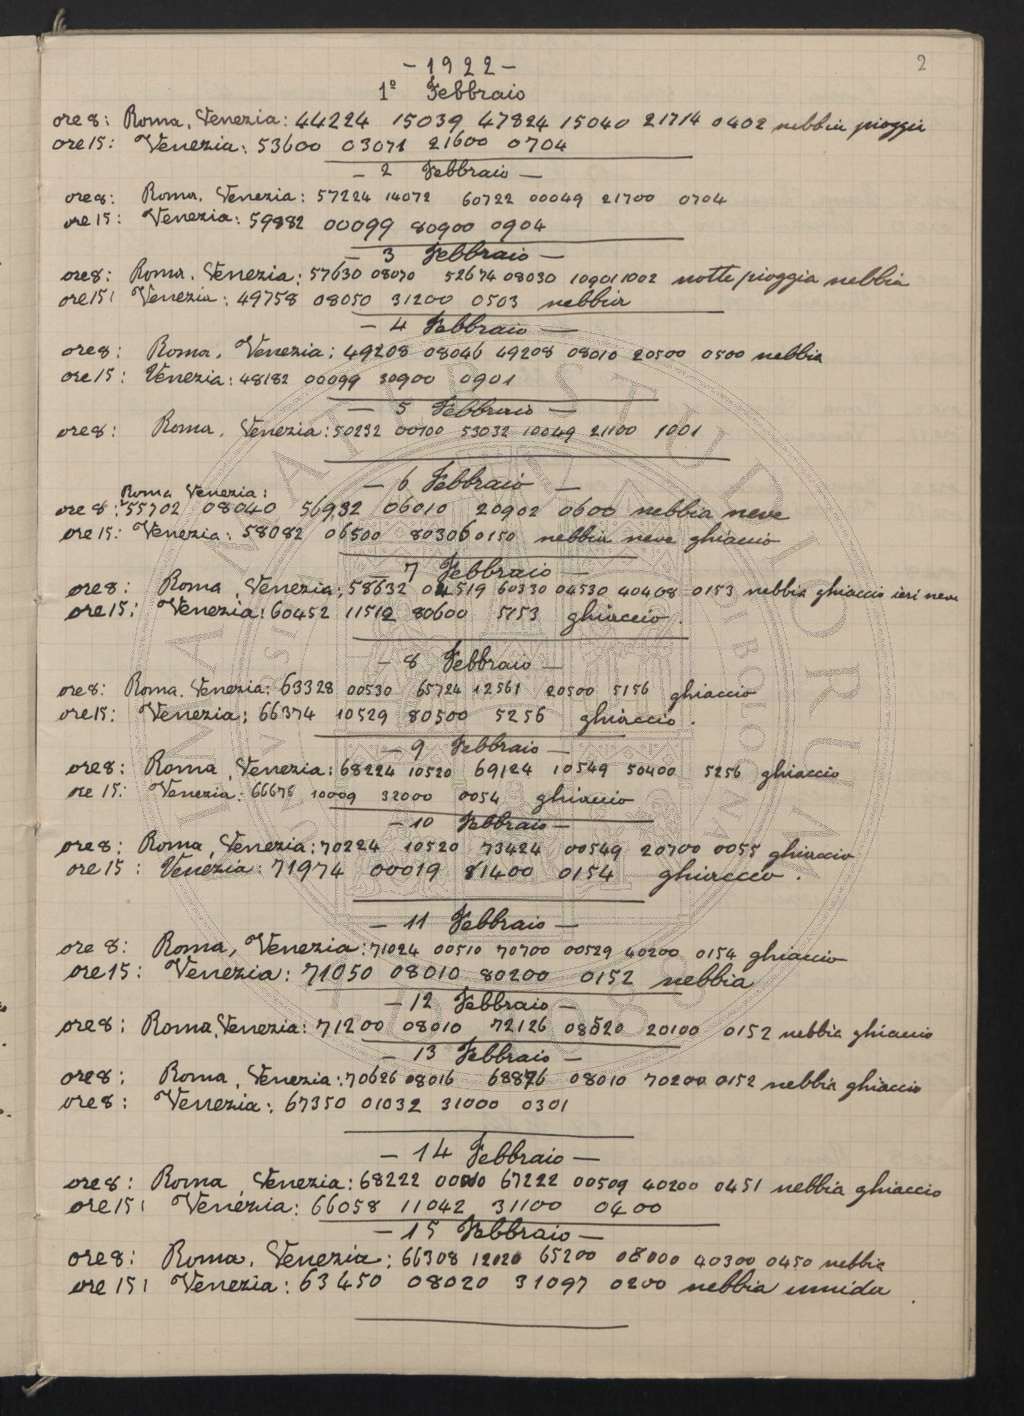 2
- 1922 -
1º Febbraio
ore 8: Roma, Venezia: 44224 15039 47824 15040 21714 0402 nebbia pioggia
ore 15: Venezia: 53600 03071 21600 0704
- 2 Febbraio -
ore 8: Roma. Venezia: 57224 14072 60722 00049 21700 0704
ore 15: Venezia: 59882 00099 80900 0904
- 3 Febbraio -
ore 8: Roma. Venezia: 57630 08070 52674 08030 10901 1002 notte pioggia nebbia
ore 15: Venezia: 49758 08050 31200 0503 nebbia
- 4 Febbraio -
ore 8: Roma. Venezia: 49208 08046 49208 08010 20500 0500 nebbia
ore 15: Venezia: 48182 00099 30900 0901
- 5 Febbraio -
ore 8: Roma, Venezia: 50232 00100 53032 10049 21100 1001
- 6 Febbraio -
Roma Venezia:
ore 8: 55702 08040 56932 06010 20902 0600 nebbia neve
ore 15: Venezia: 58082 06500 80306 0150 nebbia neve ghiaccio
- 7 Febbraio -
ore 8: Roma, Venezia: 58632 04519 60330 04530 40408 0153 nebbia ghiaccio ieri neve
ore 15: Venezia: 60452 11512 80600 5153 ghiaccio.
- 8 Febbraio -
ore 8: Roma. Venezia: 63328 00530 65724 12561 20500 5156 ghiaccio
ore 15: Venezia: 66374 10529 80500 5256 ghiaccio.
- 9 Febbraio -
ore 8: Roma, Venezia: 68224 10520 69124 10549 50400 5256 ghiaccio
ore 15: Venezia: 66676 10009 32000 0054 ghiaccio
- 10 Febbraio -
ore 8: Roma, Venezia: 70224 10520 73424 00549 20700 0055 ghiaccio
ore 15: Venezia: 71974 00019 81400 0154 ghiaccio.
- 11 Febbraio -
ore 8: Roma, Venezia: 71024 00510 70700 00529 40200 0154 ghiaccio
ore 15: Venezia: 71050 08010 80200 0152 nebbia
- 12 Febbraio -
ore 8: Roma, Venezia: 71200 08010 72126 08520 20100 0152 nebbia ghiaccio
- 13 Febbraio -
ore 8: Roma, Venezia: 70626 08016 68876 08010 70200 0152 nebbia ghiaccio
ore 8: Venezia: 67350 01032 31000 0301
- 14 Febbraio -
ore 8: Roma, Venezia: 68222 67222 00509 40200 0451 nebbia ghiaccio
ore 15: Venezia: 66058 11042 31100 0400
- 15 Febbraio -
ore 8: Roma. Venezia: 66308 12020 65200 08000 40300 0450 nebbia
ore 15: Venezia: 63450 08020 31097 0200 nebbia umida.